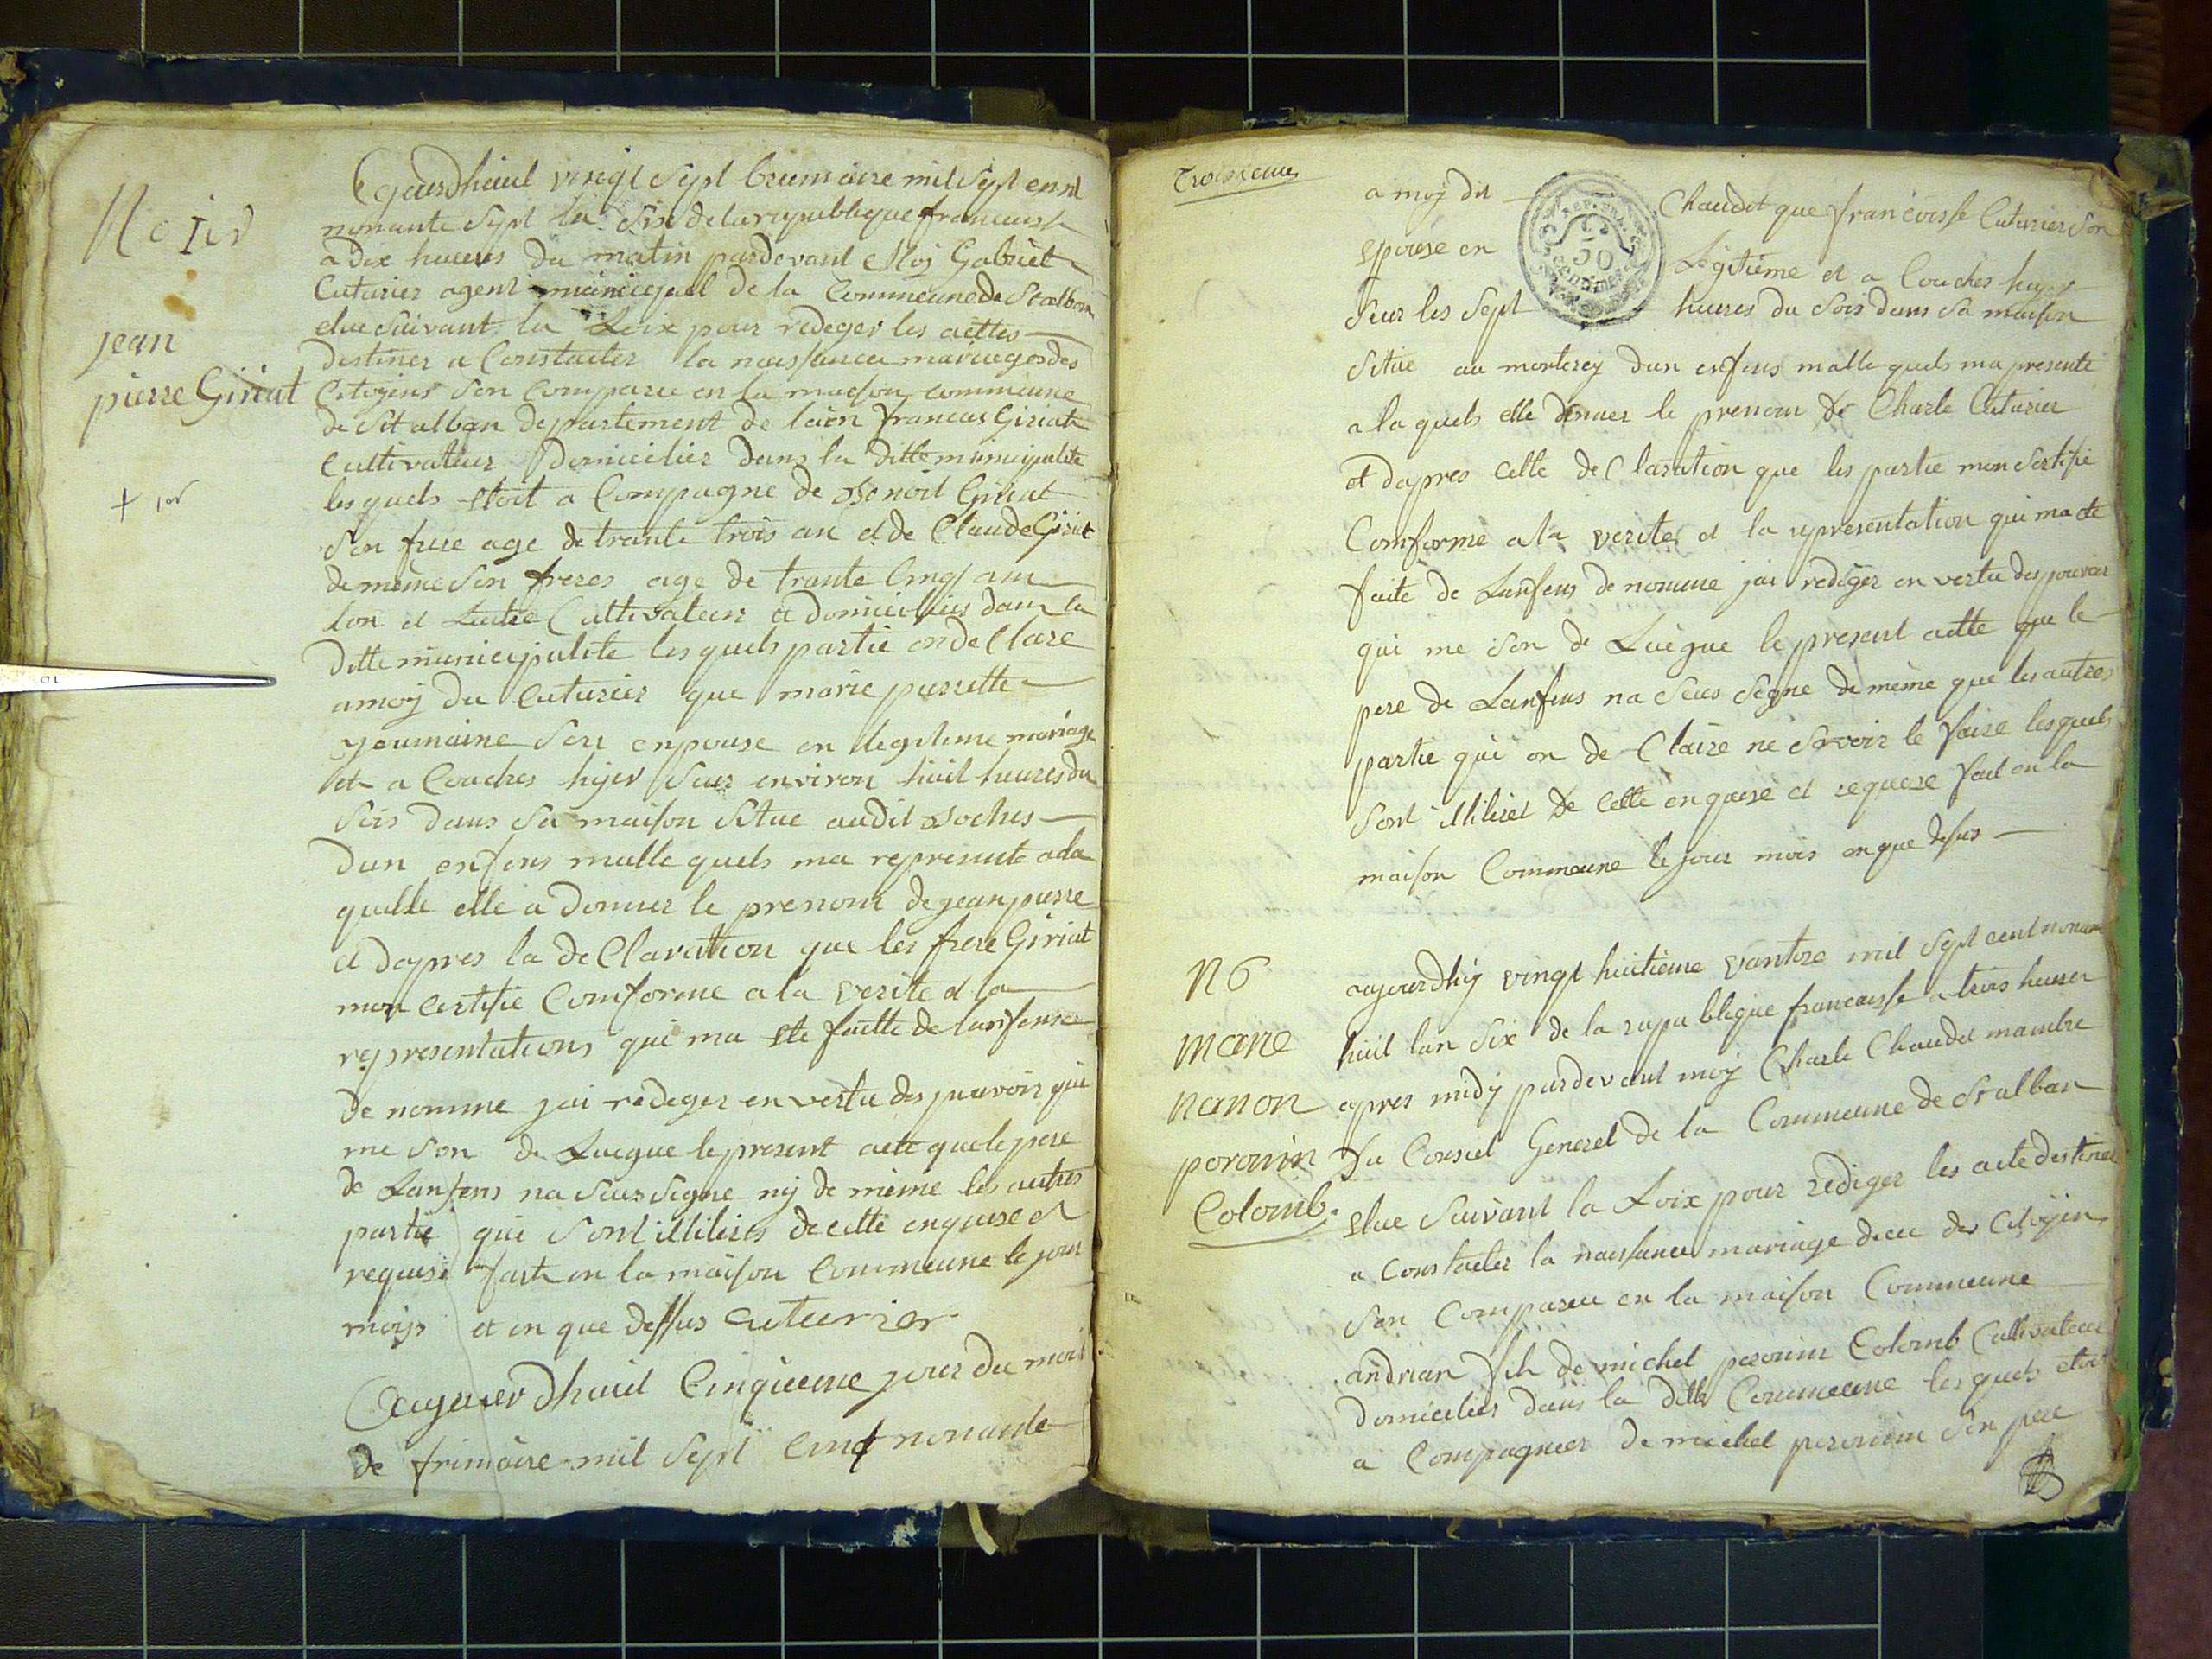 No 1er
jean
pierre Giriat
+ 1er
Cejourdhuil vingt Sept brumaire mil Sept cent
nonante Sept lan Six de la republique francaisse
a dix heures du matin pardevant Moy Gabriel
Cuturier agent municipal de la Commeune de St alban
elue Suivant la Loix pour redeger les acttes
destiner a Constaeter la naissance mariages des
Citoyens Son Comparu en la maison commeune
de St alban departement de lain francois Giriat
Cultivateur Domicilier dans la ditte municipalite
les quels etoit a Compagne de Benoit Giriat
Son frere age de trante trois an et de Claude Giriat
de meme Son freres age de trante Cinq ans
lon et Lautre Cultivateur et domicilies dans la
ditte municipalite les quels partie on de Clare
a moy du Cuturier que marie pierrette
joumaine Son enpouse en legitime mariage
et a Couches hyer Sur environ huil heures du
Soir dans Sa maison Situe audit Boches
dun enfens malle quels ma represente a la
quelle elle a donner le prenom de jean pierre
et dapres la de Claration que les frere Giriat
mon certifie Comforme a la verite et la
representations qui ma ete faitte de lanfens
de nomme jai redeger en vertu des pouvoir qui
me Son de Luegue le present acte que le pere
de Lanfens na Sieu Segne ny de meme les autres
partie qui Sont illiteres de cette enquise et
requise fait en la maison Commeune le jour
mois et en que dessus Cuteurier
Aujourdhuil Cinquieme jour du mois
de frimaire mil Sept Cent nonante
Troisieme
a moy dit Chaudet que francoisse Cuturier Son
epouse en Legitieme et a Couches hyer
Seur les Sept heures du Soir dans Sa maison
Situe au monterey dun enfens malle quels ma presente
a la quels elle donner le prenom de Charle Cuturier
et dapres Cette de Claration que les partie mon Sertifie
Comforme a la verite et la representation qui ma ete
faite de Lanfens de nomme jai rediger en vertu des pouvoir
qui me Son de Luegue le present actte que le
pere de Lanfens na Sieu Segne de meme que les autres
partie qui on de Claire ne Savoir le faire lesquels
Sont illiteres de cette enquise et requere fait en la
maison Commeune le jour mois en que desus
N6
marie
nanon
perouin
Colomb.
aujourdhy vingt huitieme vantose mil Sept cent nonante
huil lan Six de la rapublique francaisse a trois heures
apres midy pardevant moy Charle Chaudet mambre
du Consiel Generel de la Commeune de St alban
elue Suivant la Loix pour rediger les acte destiner
a constaeter la naissance mariage deces des Citoyens
Son Comparu en la maison Commeune
andrian fils de michel perouin Colomb Cultivateur
domicilier dans la ditte Commeune les quels etoit
a Compagner de michel perouin Son pere
REP. FRA.
50
centimes